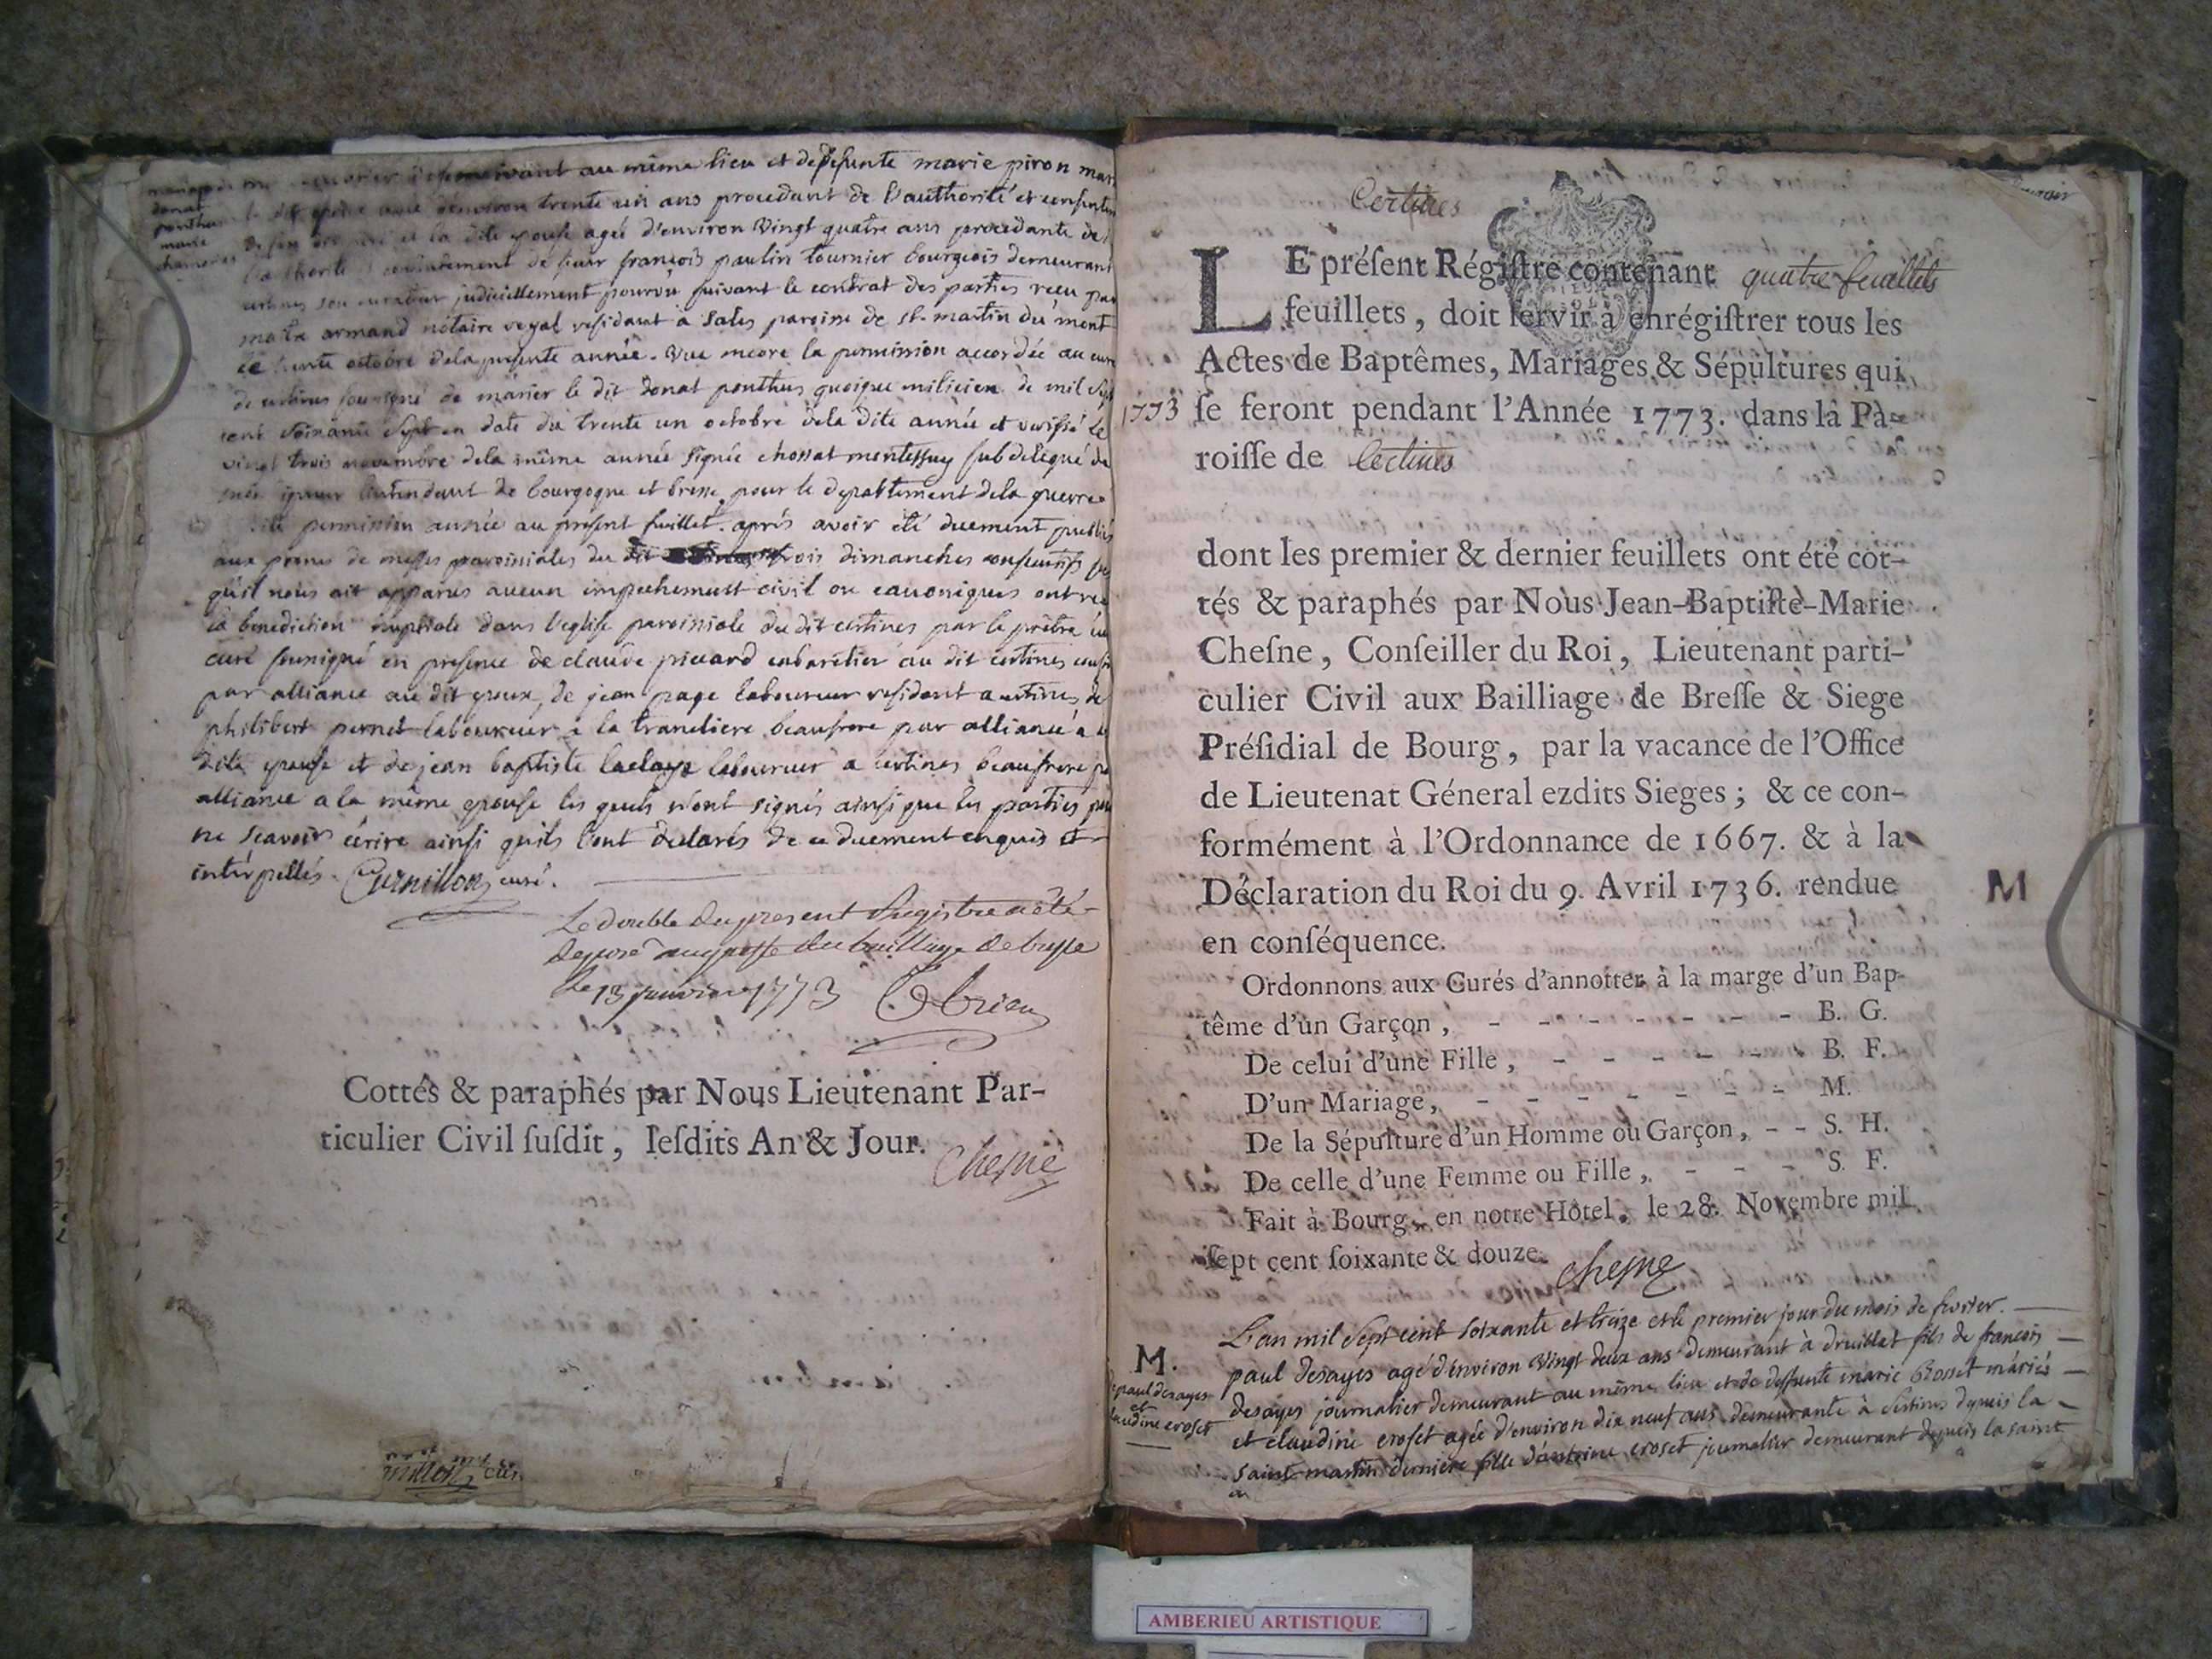 mariage de
donat
ponthus
marie
au même lieu et de deffunte marie piron mar
trente un ans procedant de l'authorité et consentem
et la dite epouse agée d'environ vingt quatre ans procedante de
de sieur françois paulin tournier bourgeois demeurant
son curateur judiciellement pourvu suivant le contrat des parties reçu par
armand nötaire royal residant a Sales paroisse de st. martin du mont
octobre dela presente année. Vue encore la permission accordée au curé
de certines soussigné de marier le dit donat ponthus quoique milicien de mil Sept
cent soixante Sept en date du trente un octobre dela dite année et verifié le
vingt trois novembre dela même année signée chossat montessuy subdelegué de
intendant de bourgogne et bresse pour le departement dela guerre
permission au present feuillet. aprés avoir été duement publiés
aux prones de messes paroissiales du dit trois dimanches consecutifs
qu'il nous ait apparus aucun impechement civil ou canoniques ont
la benediction nuptiale dans l'eglise paroissiale du dit certines par le prêtre
curé soussigné en presence de claude piccard cabaretier au dit certines
par alliance au dit epoux, de jean page laboureur residant a certines, de
philibert pernet laboureur a la trancliere beaufrere par alliance a
dite epouse et de jean baptiste laboureur a certines beaufrere
alliance a la même epouse les quels n'ont signés ainsi que les parties
ne scavoir écrire ainsi qu'ils l'ont declarés de ce duement enquis et
intérpellés. curé.
Le double du present Registre a été
deposé au greffe du bailliage de bresse
le 13 janvier 1773
Cottés & paraphés par Nous Lieutenant Par-
ticulier Civil ſuſdit, leſdits An & Jour. Chesne
Certines
LE préſent Régiſtre contenant quatre feuillets
feuillets, doit ſervir à enrégiſtrer tous les
Actes de Baptêmes, Mariages & Sépultures qui
1773 ſe feront pendant l'Année 1773. dans la Pa-
roiſſe de Certines
dont les premier & dernier feuillets ont été cot-
tés & paraphés par Nous Jean-Baptiſte-Marie
Cheſne, Conſeiller du Roi, Lieutenant parti-
culier Civil aux Bailliage de Breſſe & Siege
Préſidial de Bourg, par la vacance de l'Office
de Lieutenat Géneral ezdits Sieges; & ce con-
formément à l'Ordonnance de 1667. & à la
Déclaration du Roi du 9. Avril 1736. rendue
M
en conſéquence.
Ordonnons aux Curés d'annotter à la marge d'un Bap-
tême d'un Garçon, - - - - - - - B. G.
De celui d'une Fille, - - - - - - B. F.
D'un Mariage, - - - - - - - M.
De la Sépulture d'un Homme ou Garçon, - - S. H.
De celle d'une Femme ou Fille, - - - S. F.
Fait à Bourg, en notre Hôtel, le 28. Novembre mil
ſept cent ſoixante & douze. Chesne
L'an mil Sept cent soixante et treize et le premier jour du mois de fevrier.
M.
paul desayes
et
claudine croset
paul desayes agé d'environ vingt deux ans demeurant à druillat fils de françois
desayes journalier demeurant au même lieu et de deffunte marie Rosset mariés
et claudine croset agée d'environ dix neuf ans demeurante à Certines depuis la
saint martin derniere fille d'antoine croset journalier demeurant depuis la saint
AMBERIEU ARTISTIQUE